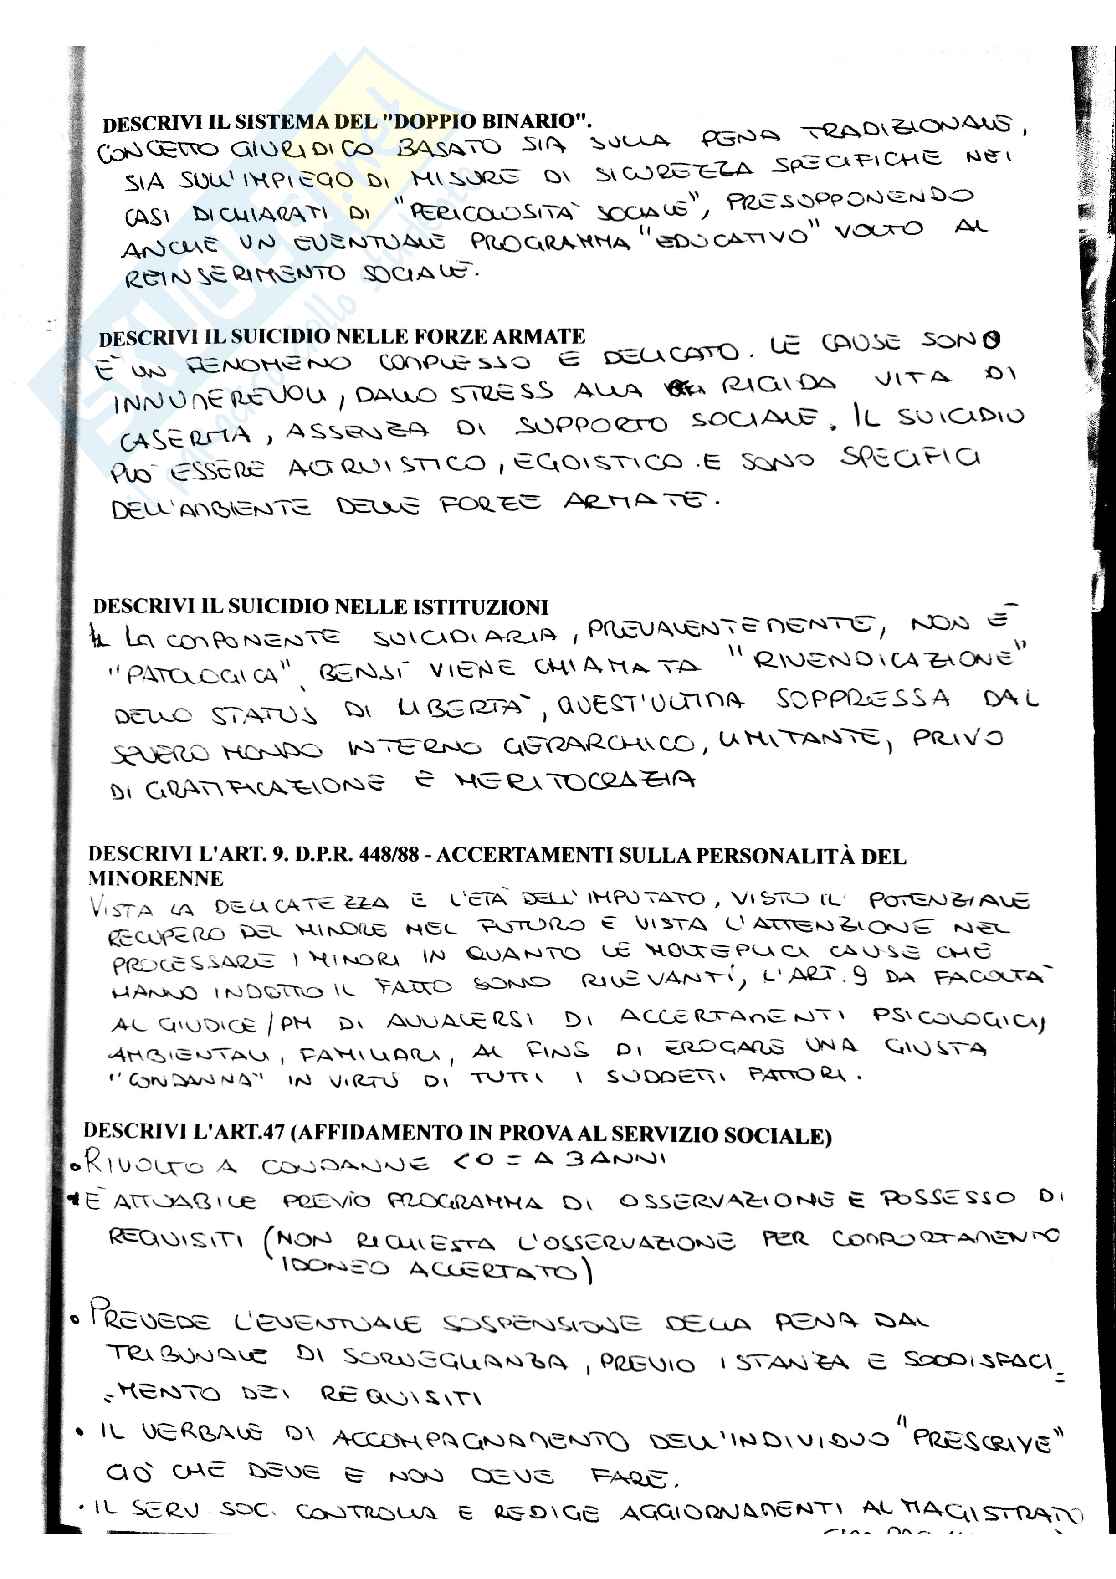 DESCRIVI IL SISTEMA DEL "DOPPIO BINARIO".
CONCETTO GIURIDICO BASATO SIA SULLA PENA TRADIZIONALE,
SIA SULL'IMPIEGO DI MISURE DI SICUREZZA SPECIFICHE NEI
CASI DICHIARATI DI "PERICOLOSITÀ SOCIALE", PRESOPPONENDO
ANCHE UN EVENTUALE PROGRAMMA "EDUCATIVO" VOLTO AL
REINSERIMENTO SOCIALE.
DESCRIVI IL SUICIDIO NELLE FORZE ARMATE
È UN FENOMENO COMPLESSO E DELICATO. LE CAUSE SONO
INNUMEREVOLI, DALLO STRESS ALLA RIGIDA VITA DI
CASERMA, ASSENZA DI SUPPORTO SOCIALE. IL SUICIDIO
PUÒ ESSERE ALTRUISTICO, EGOISTICO. E SONO SPECIFICI
DELL'AMBIENTE DELLE FORZE ARMATE.
DESCRIVI IL SUICIDIO NELLE ISTITUZIONI
LA COMPONENTE SUICIDIARIA, PREVALENTEMENTE, NON È
"PATOLOGICA", BENSÌ VIENE CHIAMATA "RIVENDICAZIONE"
DELLO STATUS DI LIBERTÀ, QUEST'ULTIMA SOPPRESSA DAL
SEVERO MONDO INTERNO GERARCHICO, LIMITANTE, PRIVO
DI GRATIFICAZIONE E MERITOCRAZIA
DESCRIVI L'ART. 9. D.P.R. 448/88 - ACCERTAMENTI SULLA PERSONALITÀ DEL
MINORENNE
VISTA LA DELICATEZZA E L'ETÀ DELL'IMPUTATO, VISTO IL POTENZIALE
RECUPERO DEL MINORE NEL FUTURO E VISTA L'ATTENZIONE NEL
PROCESSARE I MINORI IN QUANTO LE MOLTEPLICI CAUSE CHE
HANNO INDOTTO IL FATTO SONO RILEVANTI, L'ART. 9 DA FACOLTÀ
AL GIUDICE/PM DI AVVALERSI DI ACCERTAMENTI PSICOLOGICI,
AMBIENTALI, FAMILIARI, AL FINE DI EROGARE UNA GIUSTA
"CONDANNA" IN VIRTÙ DI TUTTI I SUDDETTI FATTORI.
DESCRIVI L'ART.47 (AFFIDAMENTO IN PROVA AL SERVIZIO SOCIALE)
• RIVOLTO A CONDANNE < O = A 3 ANNI
• È ATTUABILE PREVIO PROGRAMMA DI OSSERVAZIONE E POSSESSO DI
REQUISITI (NON RICHIESTA L'OSSERVAZIONE PER COMPORTAMENTO
IDONEO ACCERTATO)
• PREVEDE L'EVENTUALE SOSPENSIONE DELLA PENA DAL
TRIBUNALE DI SORVEGLIANZA, PREVIO ISTANZA E SODDISFACI-
MENTO DEI REQUISITI
• IL VERBALE DI ACCOMPAGNAMENTO DELL'INDIVIDUO "PRESCRIVE"
CIÒ CHE DEVE E NON DEVE FARE.
• IL SERV SOC. CONTROLLA E REDIGE AGGIORNAMENTI AL MAGISTRATO